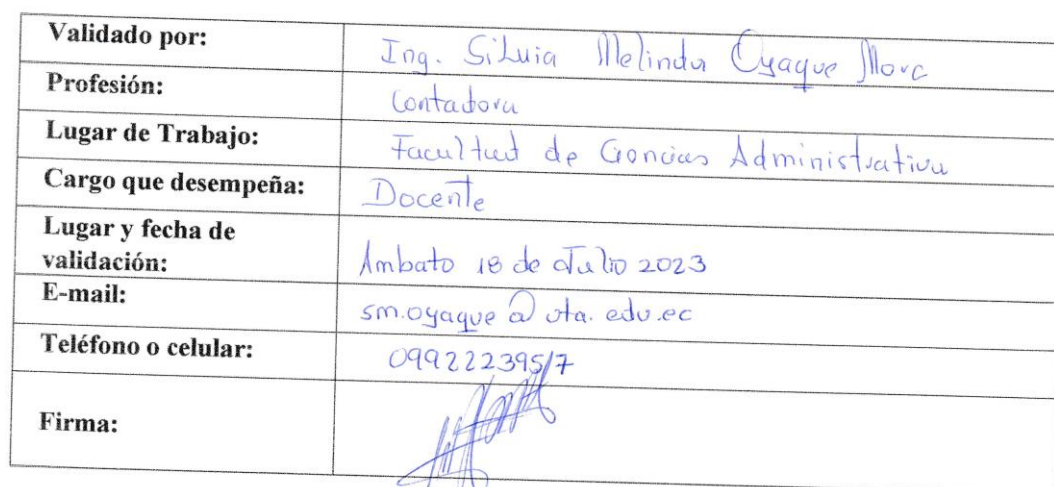 Validado por: Ing. Silvia Melinda Oyaque Mora
Profesión: Contadora
Lugar de Trabajo: Facultad de Ciencias Administrativa
Cargo que desempeña: Docente
Lugar y fecha de
validación: Ambato 18 de Julio 2023
E-mail: sm.oyaque@uta.edu.ec
Teléfono o celular: 0992223957
Firma: